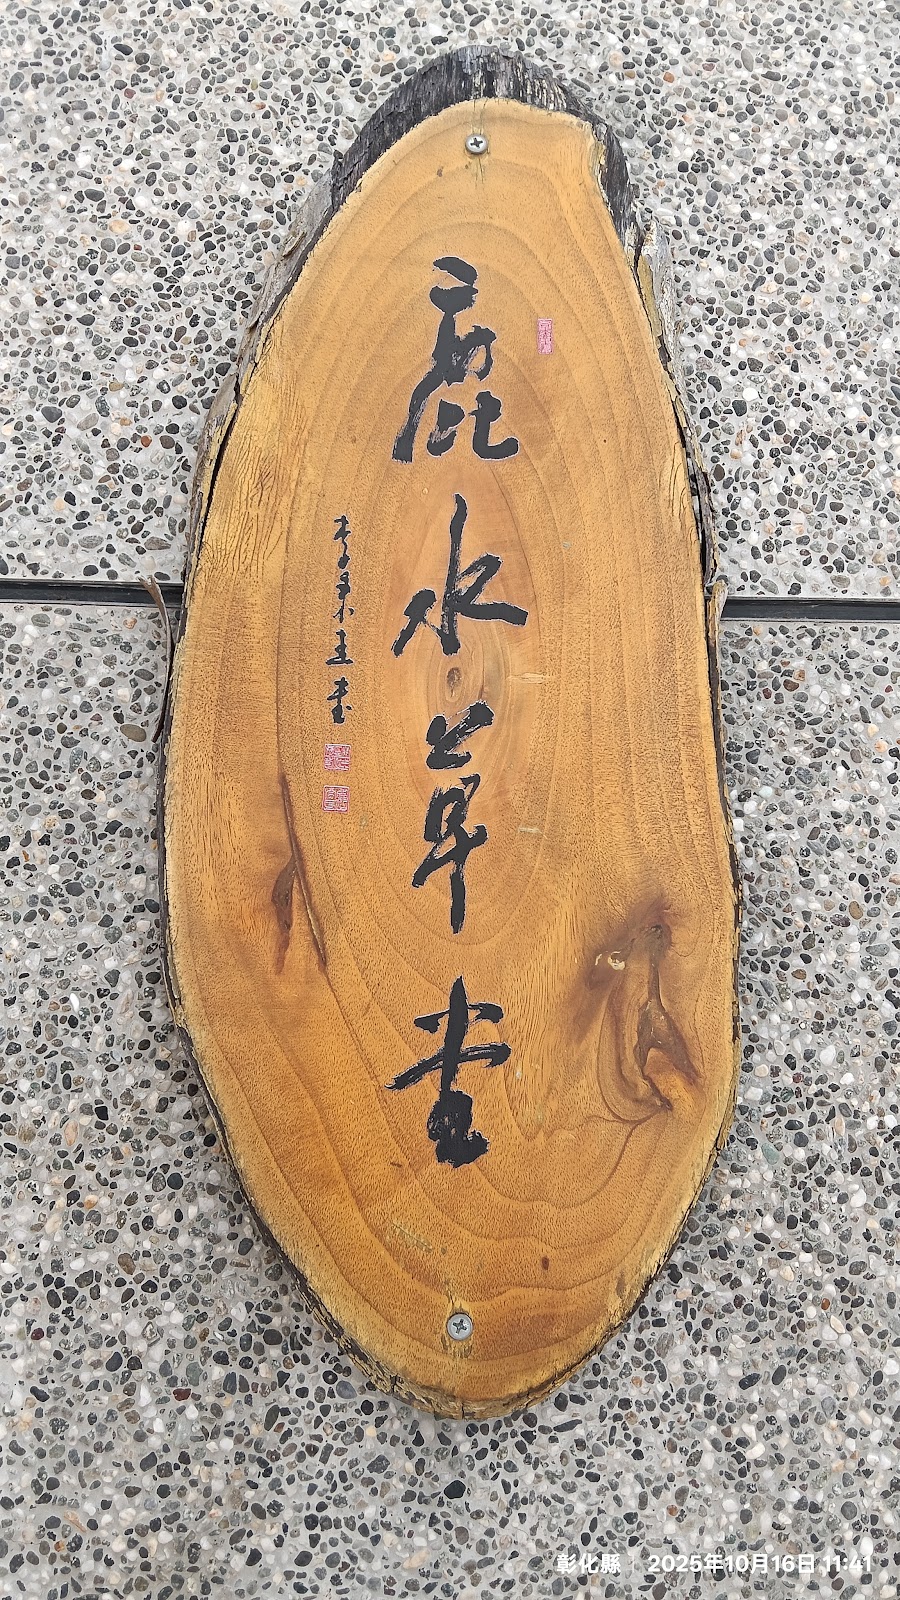 鹿水草堂
李秉圭書
彰化縣 | 2025年10月16日 11:41